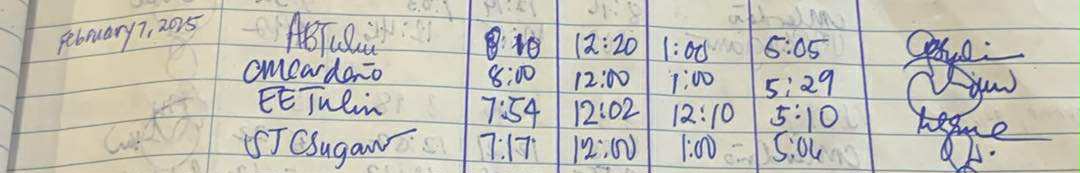 February 7, 2025 ABTulin 8:10 12:20 1:00 5:05
OMCardeño 8:00 12:00 1:00 5:29
EETulin 7:54 12:02 12:10 5:10
STCSugano 7:17 12:00 1:00 5:06